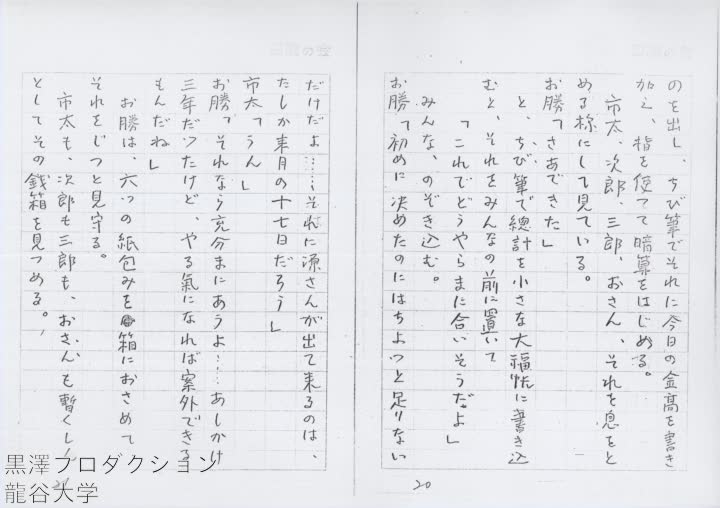 のを出し、ちび筆でそれに今日の金高を書き
加え、指を使つて暗算をはじめる。
市太、次郎、三郎、おさん、それを息をと
める様にして見ている。
お勝「さあできた」
と、ちび筆で總計を小さな大福帳に書き込
むと、それをみんなの前に置いて
「これでどうやらまに合いそうだよ」
みんな、のぞき込む。
お勝「初めに決めたのにはちよつと足りない
20
だけだよ……それに源さんが出て来るのは、
たしか来月の十七日だろう」
市太「うん」
お勝「それなら充分まにあうよ……あしかけ
三年だつたけど、やる氣になれば案外できる
もんだね」
お勝は、六つの紙包みを箱におさめて
それをじつと見守る。
市太も、次郎も三郎も、おさんも暫くしん
としてその銭箱を見つめる。
黒澤プロダクション
龍谷大学